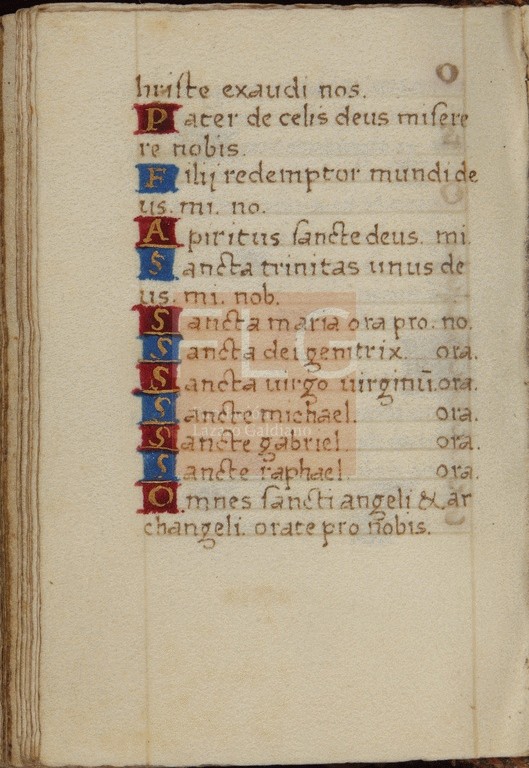 hriſte exaudi nos.
Pater de celis deus miſere
re nobis.
Filij redemptor mundi de
us. mi. no.
Apiritus ſancte deus. mi.
Sancta trinitas unus de
us. mi. nob.
Sancta maria ora pro. no.
Sancta dei genitrix. ora.
Sancta uirgo uirginū. ora.
Sancte michael. ora.
Sancte gabriel. ora.
Sancte raphael. ora.
Omnes ſancti angeli & ar
changeli. orate pro nobis.
FLG
Lázaro Galdiano